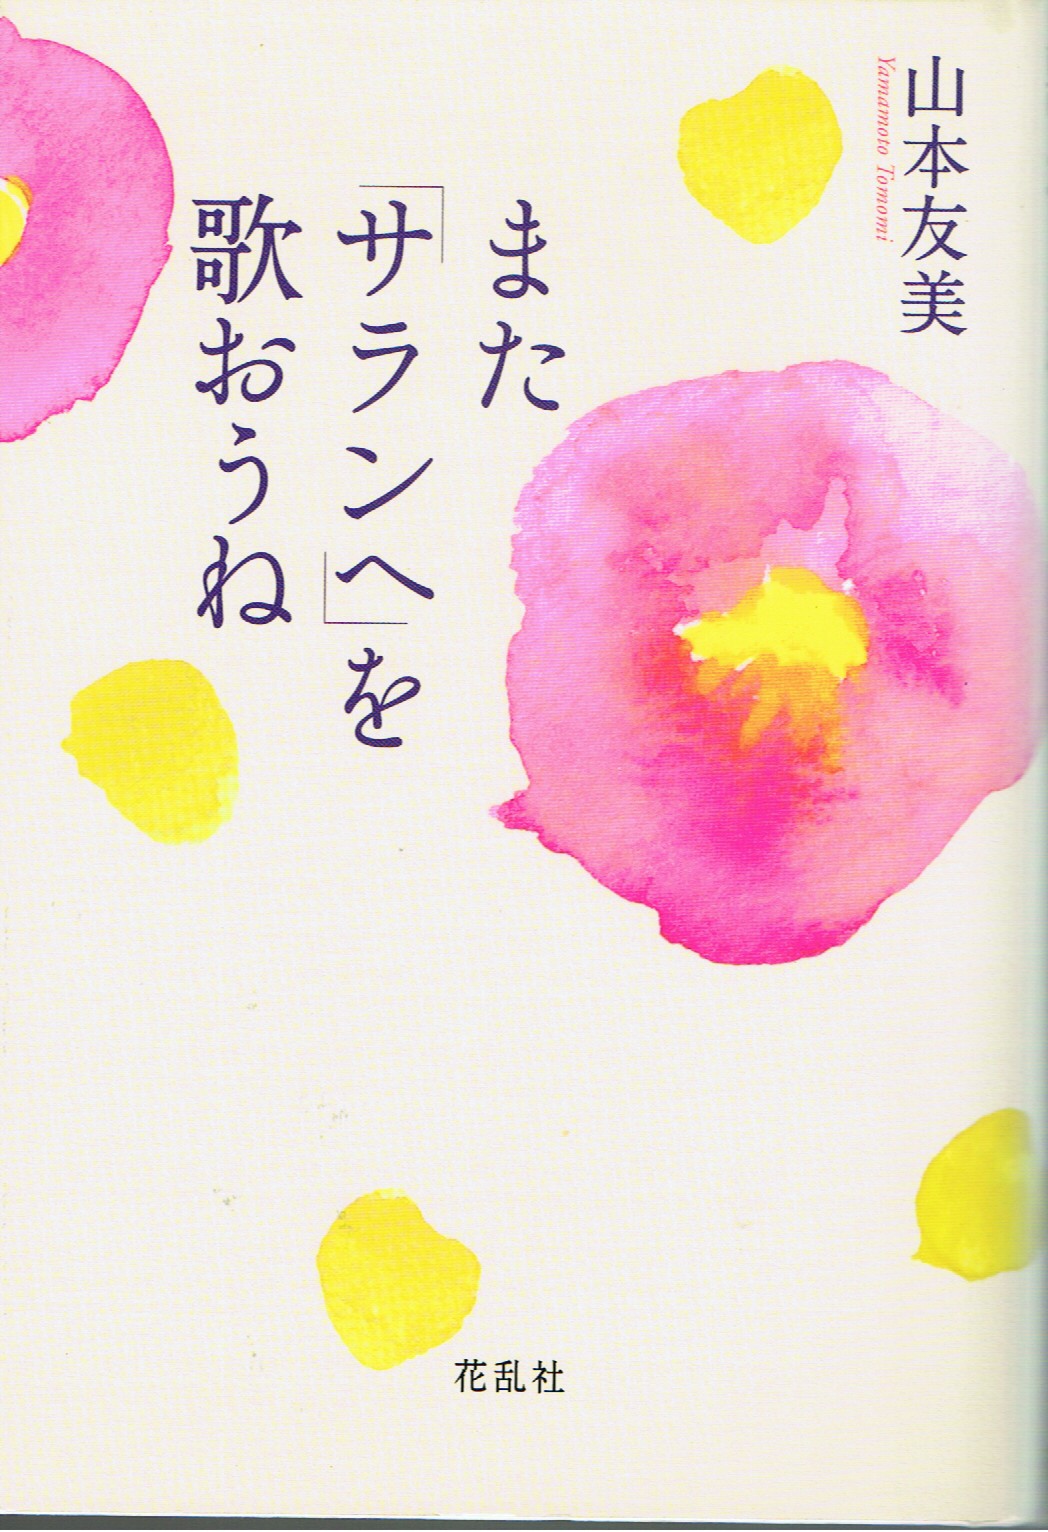 山本友美
Yamamoto Tomomi
また
「サランへ」を
歌おうね
花乱社